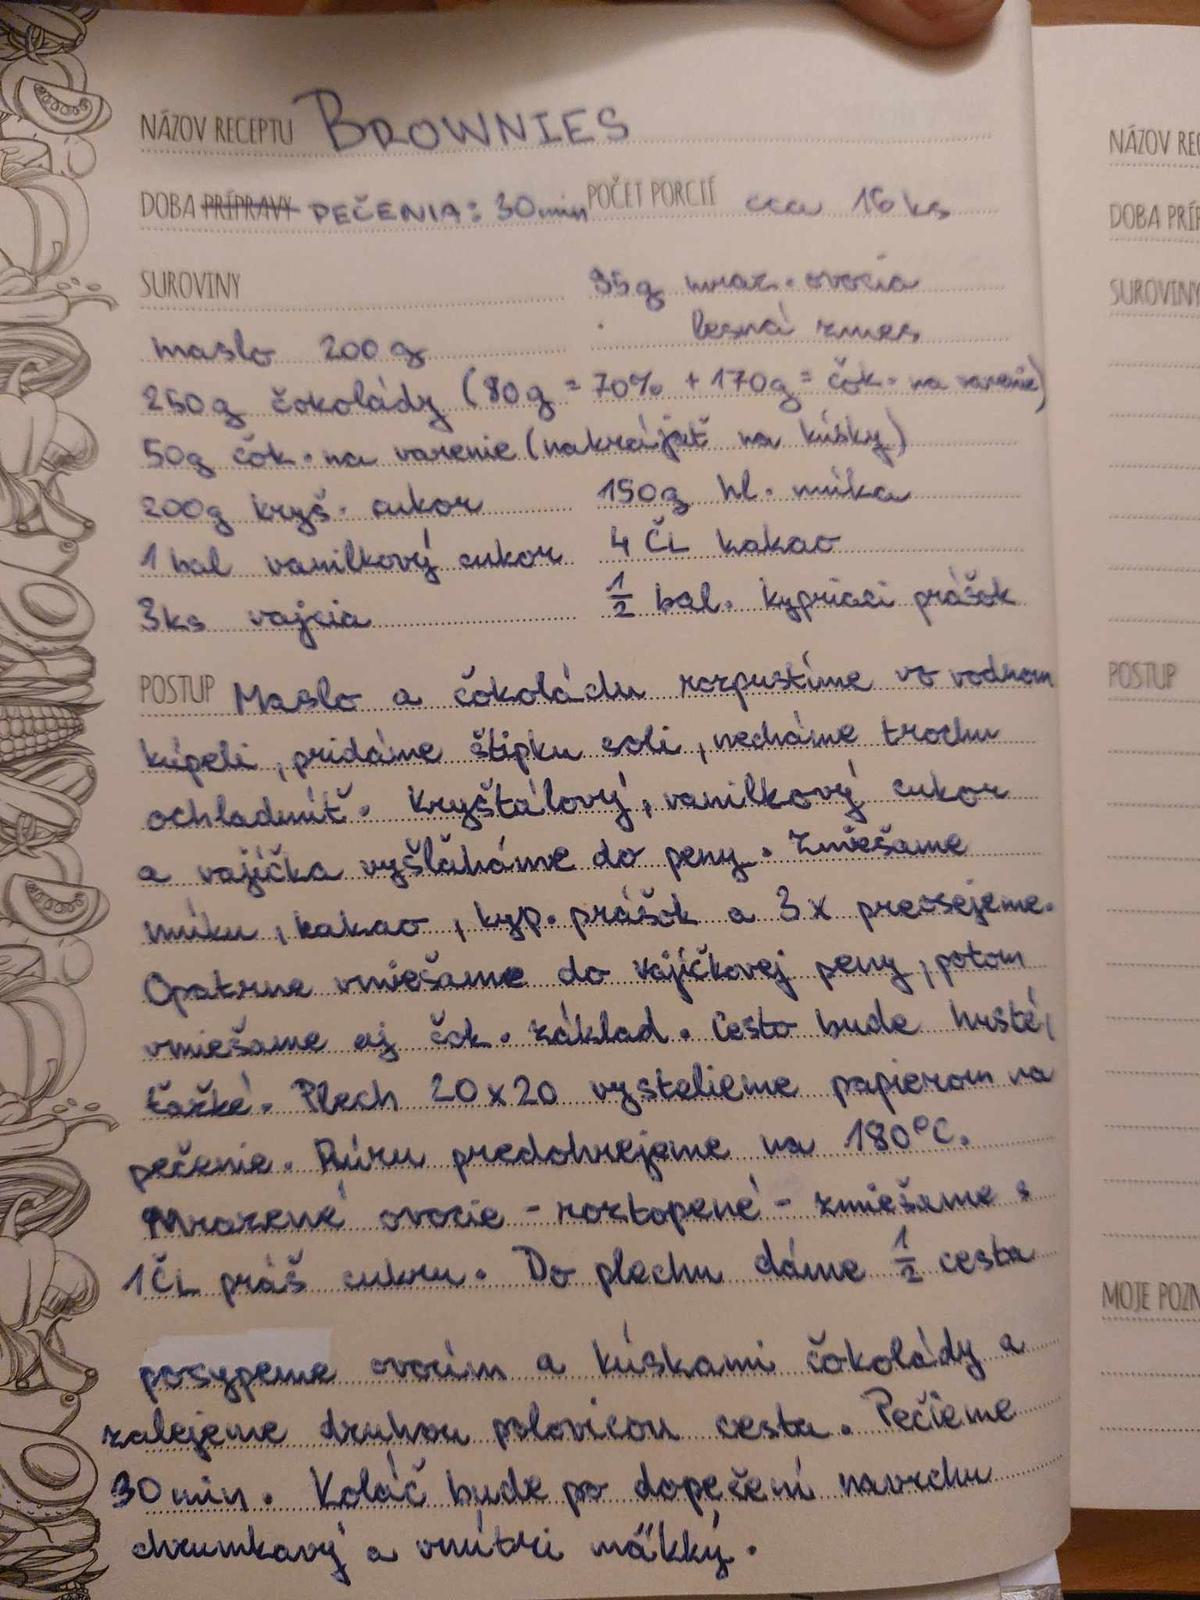 NÁZOV RECEPTU BROWNIES
DOBA PRÍPRAVY PEČENIA: 30min POČET PORCIÍ cca 16 ks
SUROVINY
35g mraz. ovocia
lesná zmes
maslo 200 g
250g čokolády (80g = 70% + 170g = čok. na varenie)
50g čok. na varenie (nakrájať na kúsky)
200g kryš. cukor
150g hl. múka
1 bal vanilkový cukor
4 ČL kakao
3ks vajcia
1/2 bal. kypriaci prášok
POSTUP Maslo a čokoládu rozpustíme vo vodnom
kúpeli, pridáme štipku soli, necháme trochu
ochladnúť. Kryštálový, vanilkový cukor
a vajíčka vyšľaháme do peny. Zmiešame
múku, kakao, kyp. prášok a 3x preosejeme.
Opatrne vmiešame do vajíčkovej peny, potom
vmiešame aj čok. základ. Cesto bude husté,
ťažké. Plech 20x20 vystelieme papierom na
pečenie. Rúru predohrejeme na 180°C.
Mrazené ovocie - roztopené - zmiešame s
1ČL práš cukru. Do plechu dáme 1/2 cesta
posypeme ovocím a kúskami čokolády a
zalejeme druhou polovicou cesta. Pečieme
30min. Koláč bude po dopečení navrchu
chrumkavý a vnútri mäkký.
NÁZOV REC
DOBA PRÍP
SUROVINY
POSTUP
MOJE POZN